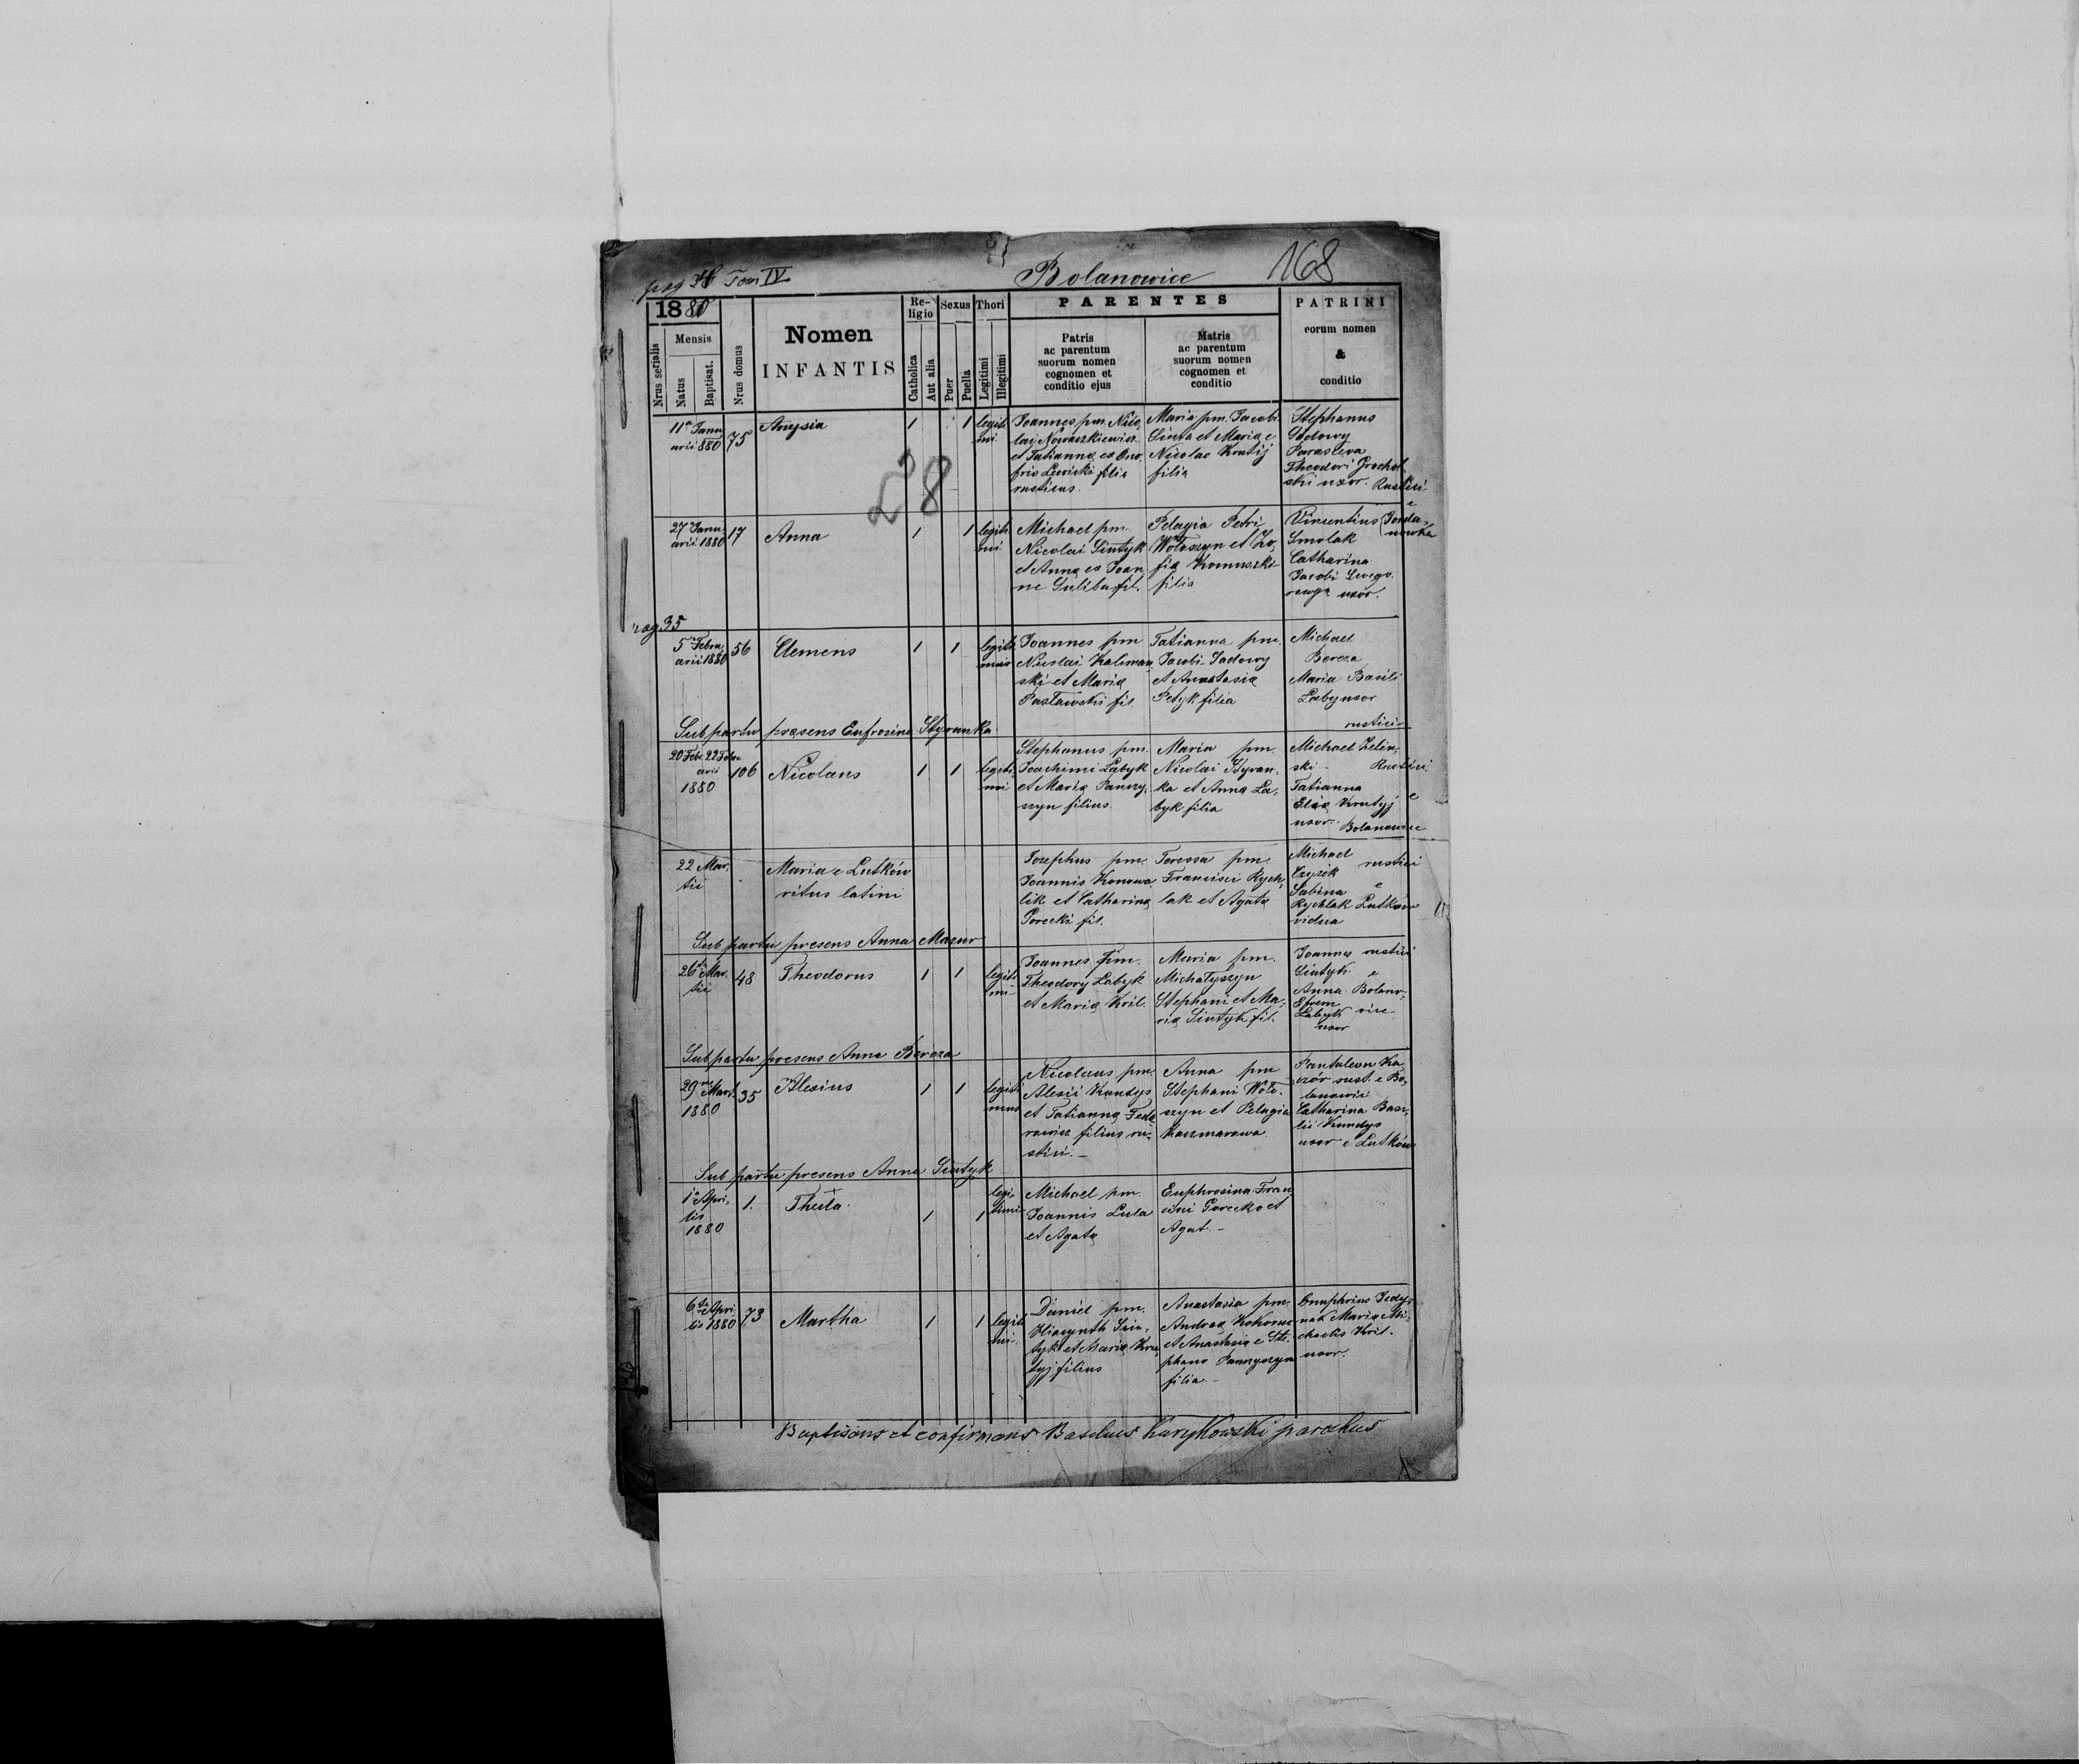 pag 34 Tom IV
Bolanowice
168
1880
Nrus serialis
Mensis
Natus
Baptisat.
Nrus domus
Nomen
INFANTIS
Re-
ligio
Catholica
Aut alia
Sexus
Puer
Puella
Thori
Legitimi
Illegitimi
PARENTES
Patris
ac parentum
suorum nomen
cognomen et
conditio ejus
Matris
ac parentum
suorum nomen
cognomen et
conditio
PATRINI
eorum nomen
&
conditio
11a Janu
arii 880
75
Anysia
1
1
legiti
mi
Joannes pm. Nico
lai Nowaszkiewicz
et Tatianna ex Ono
frio Lewicki filia
rusticus.
Maria pm. Jacobi
et Maria e
Nicolao Krutij
filia
Stephanus
Sadowy
Parasteva
Theodori Grochol
ski uxor. Rustici
28
27 Janu
arii 1880
17
Anna
1
1
legiti
mi
Michael pm.
Nicolai Sintyk
et Anna ex Joan
ne Suliba fil.
Pelagia Petri
Wołoszyn et Zo,
fia Komuszki
filia
Vincentius
Smolak
Catharina
Jacobi
uxor.
pag 35
5a Febru
arii 1880
56
Clemens
1
1
legiti
mus
Joannes pm
Nicolai Kalman
ski et Maria
Pasławski fil
Tatianna pm.
Jacobi Sadowy
et Anastasia
Petyk filia
Michael
Bereza
Maria Basili
Laby uxor
rustici
Sub partu præsens Eufrozina Styranka
20 Feb. 22 Febru
arii
1880
106
Nicolaus
1
1
legiti
mi
Stephanus pm.
Joachimi Labyk
et Maria Panczy,
szyn filius.
Maria pm.
Nicolai Styran,
ka et Anna La,
byk filia
Michael Zelin,
ski Rustici
Tatianna
Eliæ Krutyj e
uxor. Bolanowice
22 Mar,
tii
Maria e Lutków
ritus latini
Josephus pm.
Joannis Konowa
lik et Catharina
Porecki fil.
Teressa pm.
Francisci Rych,
lak et Agata
Michael rustici
Czyżek
Sabina e
Rychlak Lutków
vidua
Sub partu presens Anna Mazur
26ta Mar.
tii
48
Theodorus
1
1
legiti
mi
Joannes pm.
Theodory Labyk
et Maria Kril.
Maria pm.
Michałyszyn
Stephani et Ma,
ria Sintyk fil.
Joannes rustici
Sintyk e
Anna Bolano,
Efrem
Labyk vice
uxor
Sub partu presens Anna Bereza
29na Mart.
1880
35
Alexius
1
1
legiti
mus
Nicolaus pm.
Alexii Kundys
et Tatianna Fedo
rowicz filius ru,
stici.
Anna pm
Stephani Woło,
szyn et Pelagia
Kaczmarowa.
Pantaleon Ka
czór rust. e Bo,
lanowic
Catharina Basi,
lii Kundys
uxor e Lutków
Sub partu presens Anna Sintyk
1a Apri,
lis
1880
1.
Thecla
1
1
legi,
timi
Michael pm.
Joannis Lula
et Agata
Euphrosina Fran
cisci Porecko et
Agat.
6ta Apri
lis 1880
73
Martha
1
1
legiti
mi
Daniel pm.
Hiacynth Sin,
tyk et Maria Kru
tyj filius
Anastasia pm
Andrea Kokorne
et Anastasia e Ste,
phano Panczyszyn
filia.
Onuphrius Fedy,
nak Maria Mi,
chaelis Kril.
uxor.
Baptisans et confirmans Basilius Kurykowski parochus